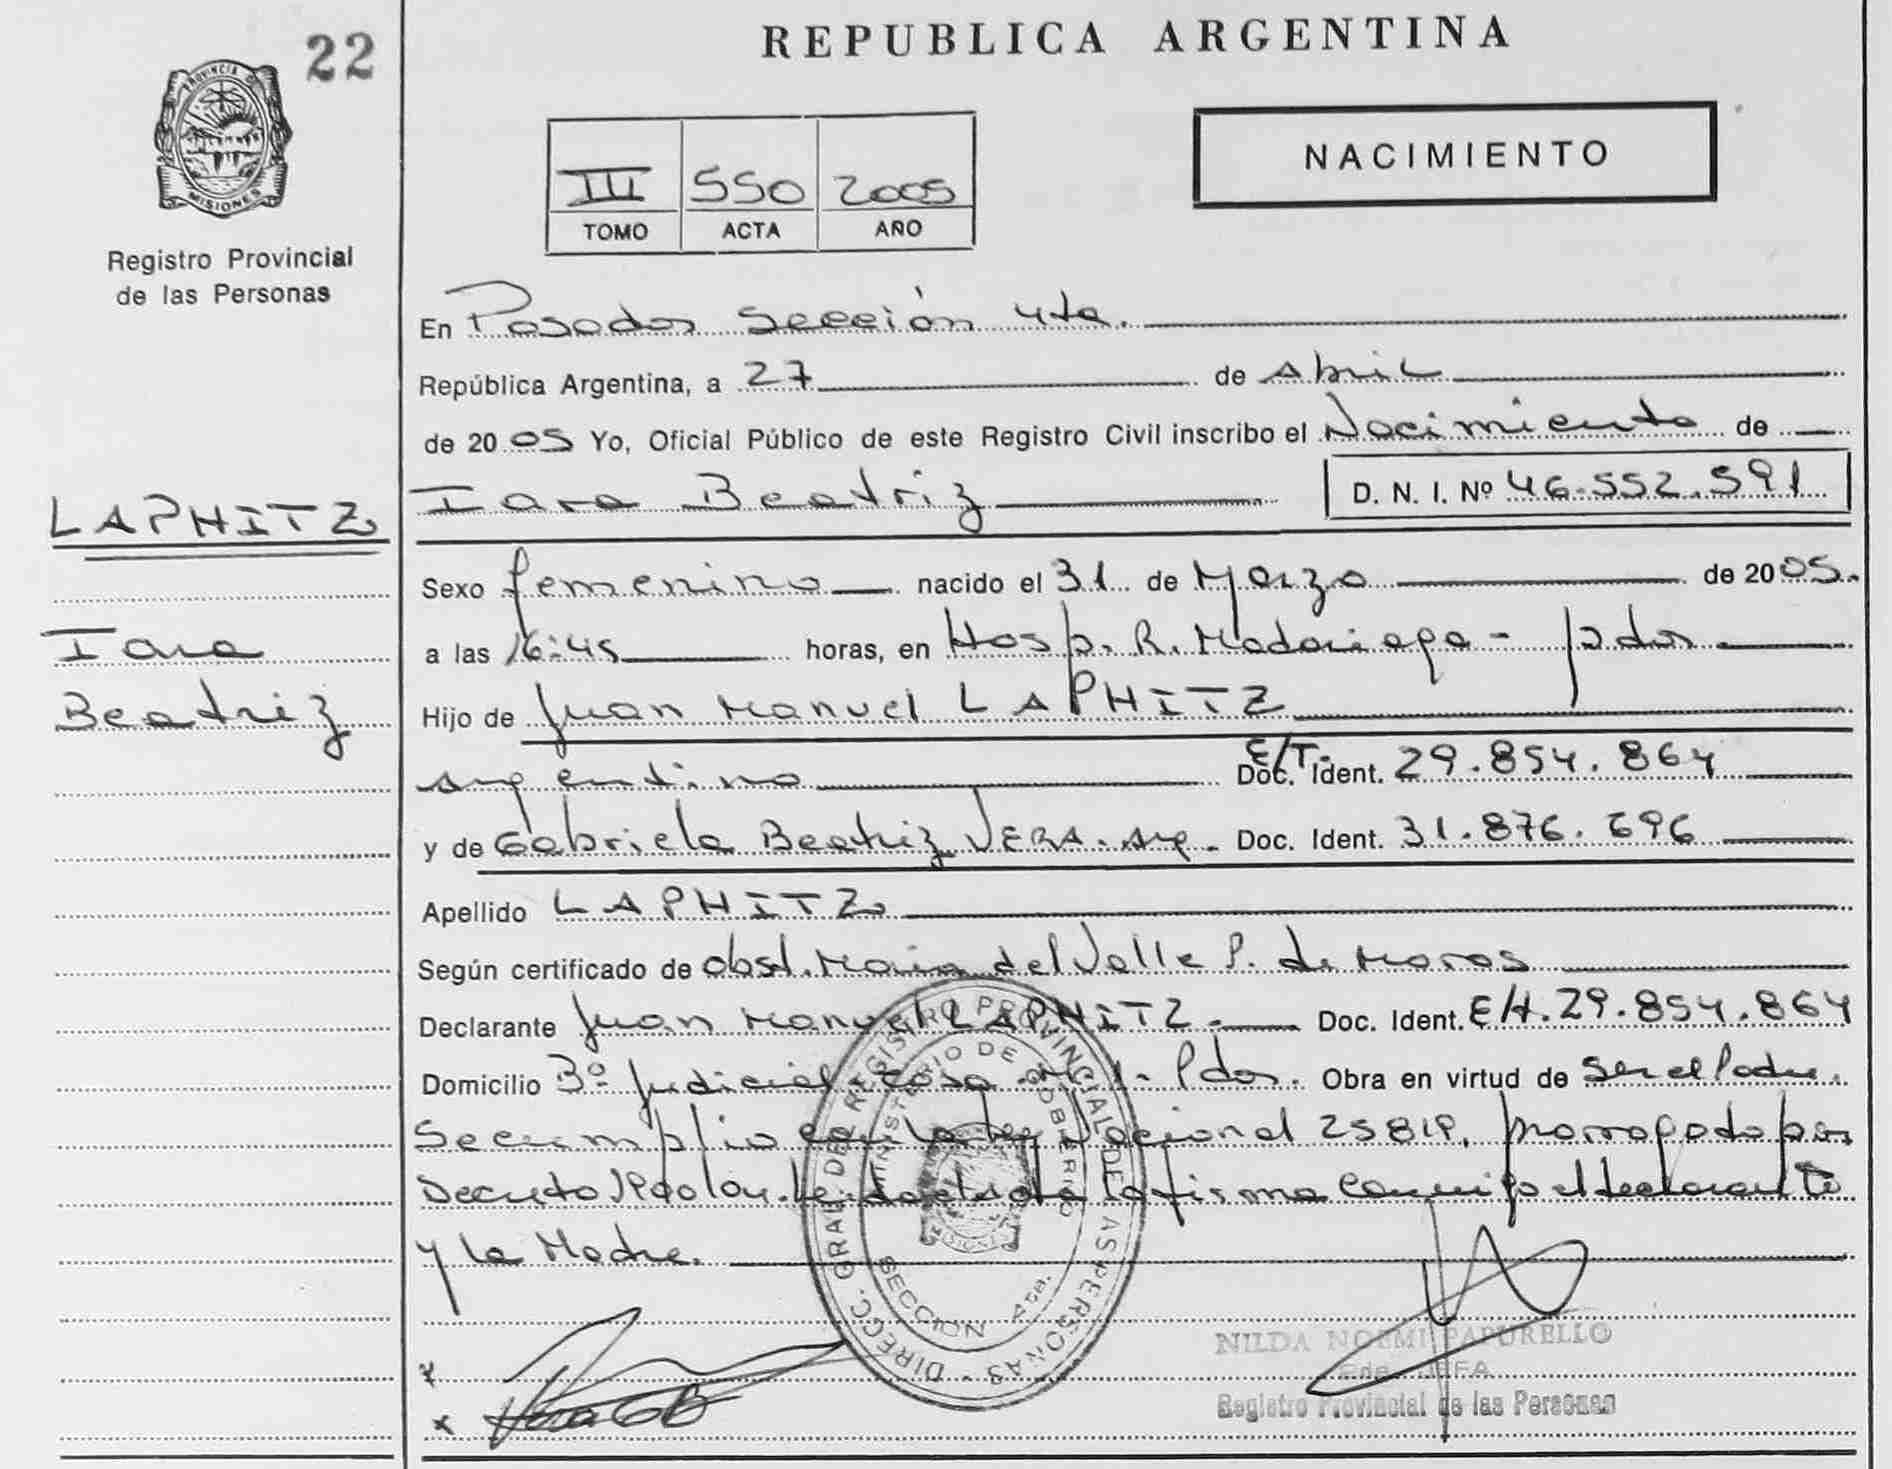 22
REPUBLICA ARGENTINA
PROVINCIA DE
MISIONES
Registro Provincial
de las Personas
III 550 2005
TOMO ACTA AÑO
NACIMIENTO
En Posadas Sección 4ta.
República Argentina, a 27 de Abril
de 2005 Yo, Oficial Público de este Registro Civil inscribo el Nacimiento de
Iara Beatriz D. N. I. Nº 46.552.591
LAPHITZ
Iara
Beatriz
Sexo femenino nacido el 31 de Marzo de 2005.
a las 16:45 horas, en Hosp. R. Madariaga - Pdas
Hijo de Juan Manuel LAPHITZ
argentino E/T. Doc. Ident. 29.854.864
y de Gabriela Beatriz VERA. Arg. Doc. Ident. 31.876.696
Apellido LAPHITZ
Según certificado de obst. Maria del Valle P. de Moras
Declarante Juan Manuel LAPHITZ. Doc. Ident. 29.854.864
Domicilio 3º Judicial casa Pdas. Obra en virtud de ser el Padre.
Se cumplio con la Ley Nacional 25819, prorrogado por
Decreto la firma conmigo el declarante
y la Madre.
DIRECC. GRAL. DE REGISTRO PROVINCIAL DE LAS PERSONAS
MINISTERIO DE GOBIERNO
MISIONES
SECCION 4ta.
x
x
NILDA NOEMI PAPURELLO
JEFA
Registro Provincial de las Personas